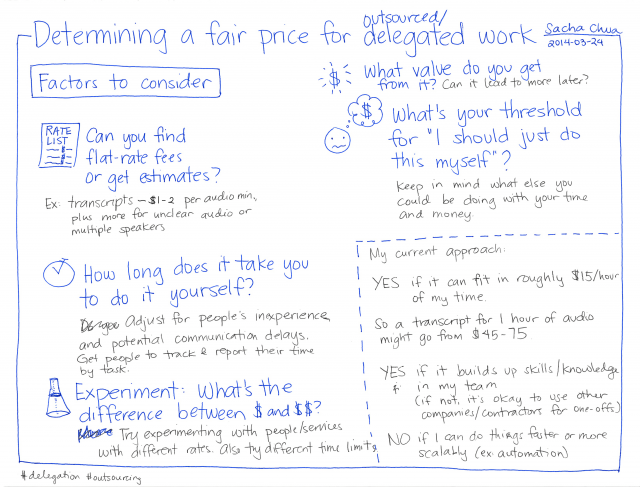 Determining a fair price for outsourced/
delegated work
Sacha Chua
2014-03-24
Factors to consider
RATE
LIST
Can you find
flat-rate fees
or get estimates?
Ex: transcripts - $1-2 per audio min,
plus more for unclear audio or
multiple speakers
How long does it take you
to do it yourself?
Adjust for people's inexperience
and potential communication delays.
Get people to track & report their time
by task.
Experiment: What's the
difference between $ and $$?
Try experimenting with people/services
with different rates. Also try different time limits.
#delegation #outsourcing
$
What value do you get
from it? Can it lead to more later?
$
What's your threshold
for "I should just do
this myself"?
Keep in mind what else you
could be doing with your time
and money.
My current approach:
YES if it can fit in roughly $15/hour
of my time.
So a transcript for 1 hour of audio
might go from $45-75
YES if it builds up skills/knowledge
in my team
(if not, it's okay to use other
companies/contractors for one-offs)
NO if I can do things faster or more
scalably (ex: automation)